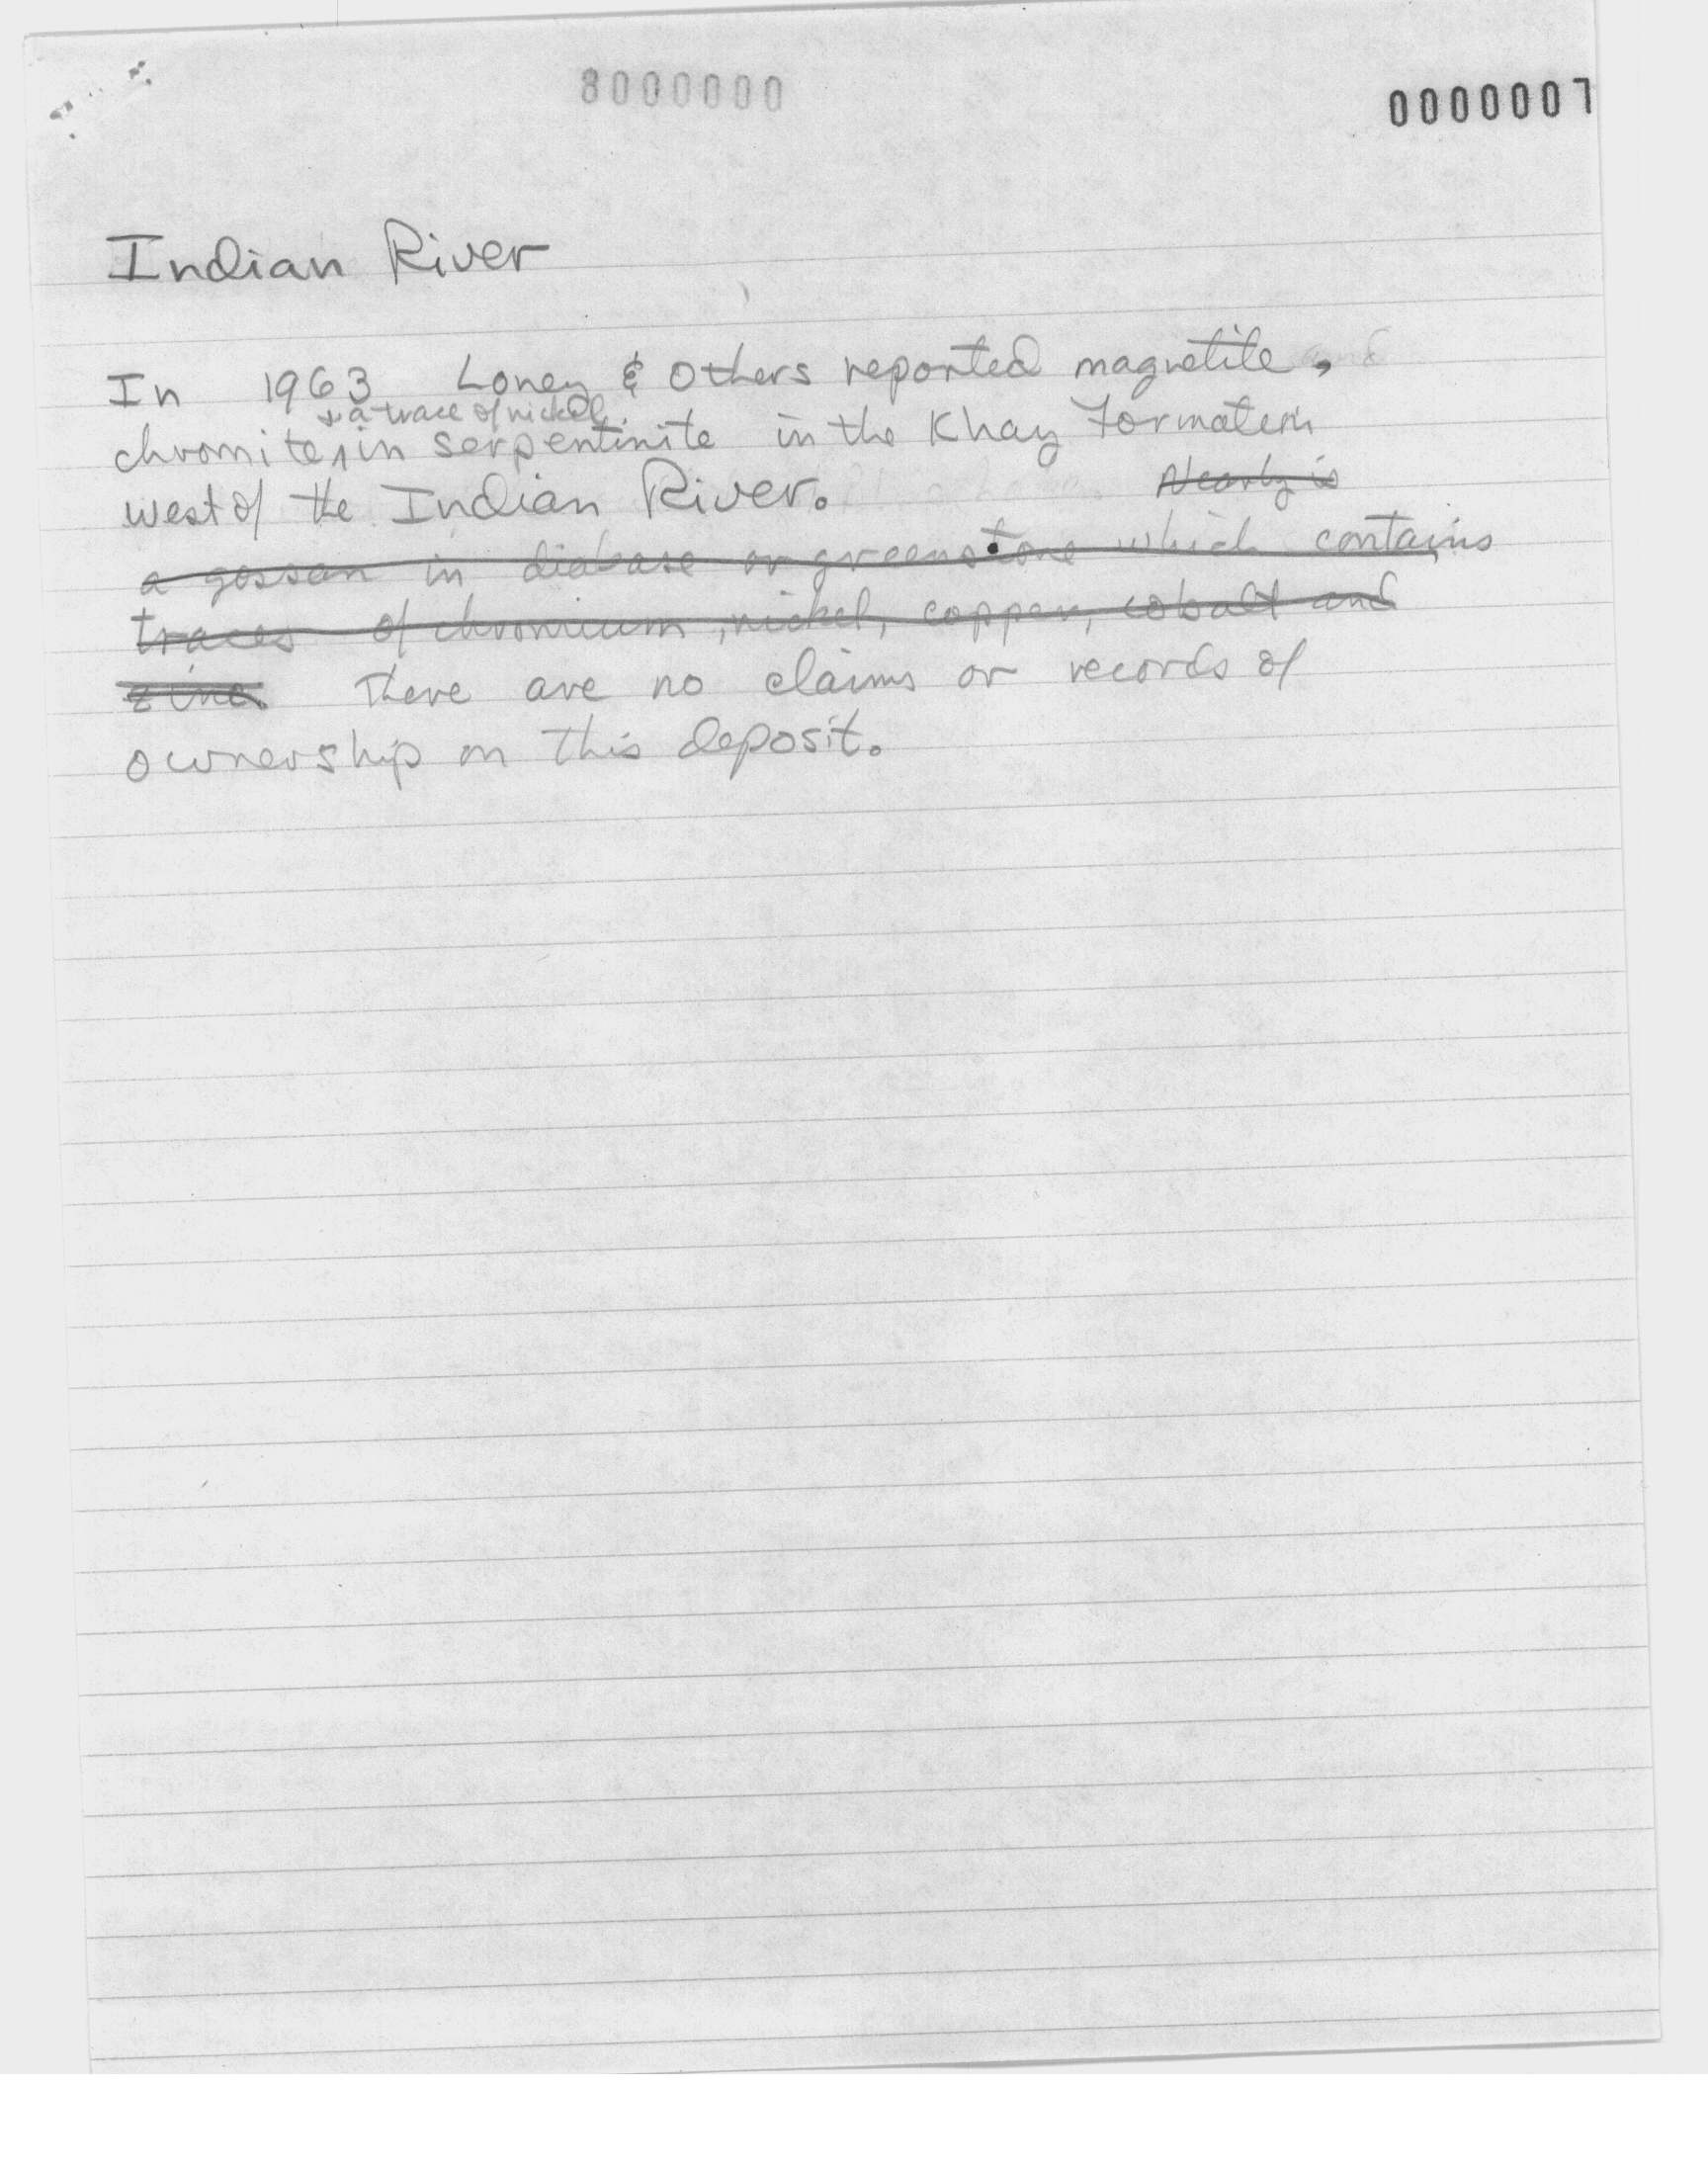 8000000
0000007
Indian River
In 1963 Loney & Others reported magnetite,
& a trace of nickel
chromite, in serpentinite in the Khaz Formation
west of the Indian River. Nearby is
a gossan in diabase or greenstone which contains
traces of chromium, nickel, copper, cobalt and
zinc. There are no claims or records of
ownership on this deposit.